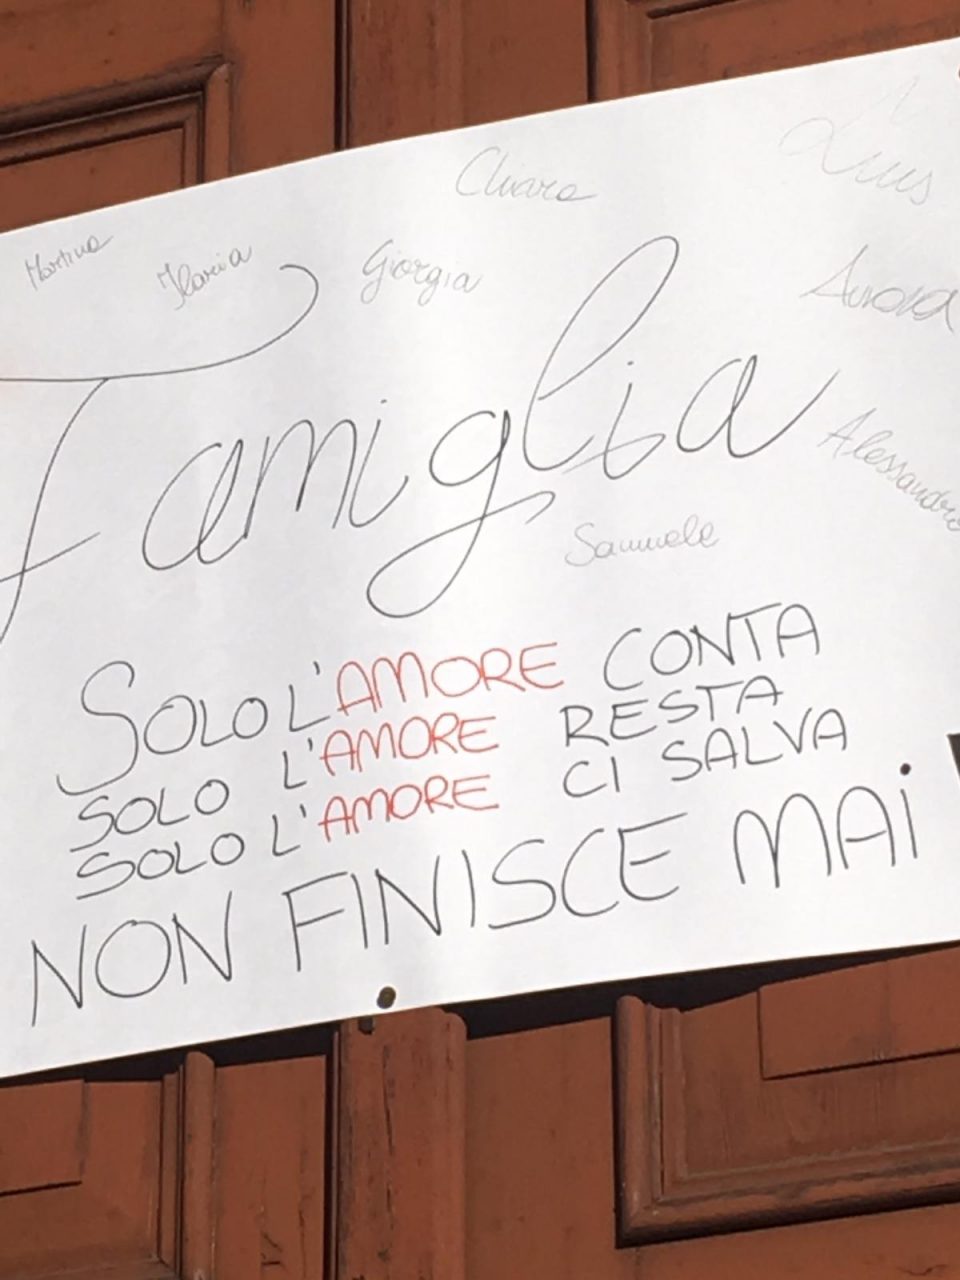 Chiara
Luis
Martina
Ilaria
Giorgia
Aurora
Famiglia
Alessandro
Samuele
SOLO L'AMORE CONTA
SOLO L'AMORE RESTA
SOLO L'AMORE CI SALVA
NON FINISCE MAI